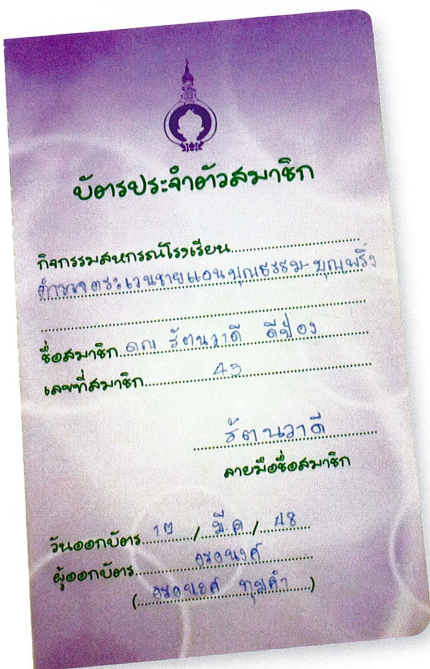 บัตรประจำตัวสมาชิก
กิจกรรมสหกรณ์โรงเรียน
ตำรวจตระเวนชายแดนบุญธรรม-บุญพริ้ง
ชื่อสมาชิก ดญ รัตนวาดี ดีป้อง
เลขที่สมาชิก 45
รัตนวาดี
ลายมือชื่อสมาชิก
วันออกบัตร 10 / มี.ค / 48
ผู้ออกบัตร อรอนงค์
(อรอนงค์)